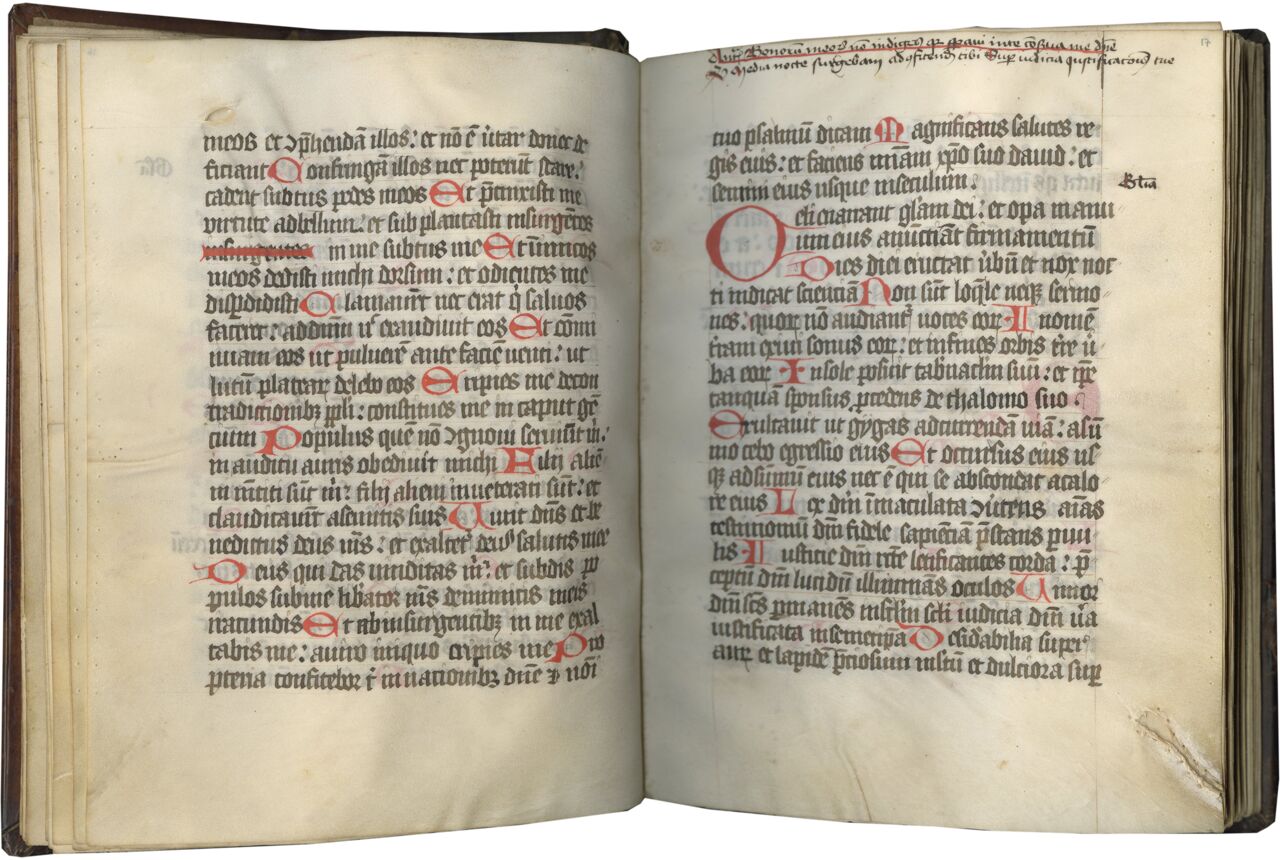 meos et ↄp̄hendā illos: et nō ē u̇tar donec de
ficiant Confringā illos nec poterūt stare:
cadent subtus pedes meos Et p̄cinxisti me
virtute adbellum: et sub plantasti insurgētes
insurgentes in me subtus me Et inimicos
meos dedisti michi dorsum: et odientes me
disp̄didisti Clamauerūt nec erat qͥ saluos
faceret: ad dnm̄ nͨ exaudiuit eos Et cōmi
nuam eos ut puluerē ante faciē uenti: ut
lutū platear̄ delebo eos Eripies me decon
tradictionibꝫ ppli: constitues me in caput gē
cium Populus quē nō ↄgnoui seruiuit m̄:
in auditu auris obediuit michi Filij alie
ni m̄titi sūt m̄: filij alieni inueterati sūt: et
claudicauerūt asemitis suis Viuit dn̄s et be
nedictus deus m̄s: et exaltet̄ deus salutis mee
Deus qui das uindictas m̄: et subdis po
pulos sub me lib̄ator m̄s deinimicis meis
iracundis Et ab insurgentibꝫ in me exal
tabis me: auiro iniquo eripies me Pro
pterea confitebor t̄ in nacionibꝫ dn̄e ⁊ nōi
17
Ant̄ Bonorū meoꝝ nō indiges qͥ speraui in te cōserua me dn̄e
V̄ Media nocte surgebam ad ↄfitend̄ tibi Super iudicia iustificacoīs tue
tuo psalmū dicam Magnificans salutes re
gis eius: et faciens mīam xp̄o suo dauid: et
semini eius usque inseculum:
Gl̄ia
Celi enarrant gl̄am dei: et opa manu
um eius anūctiāt firmamentū
Dies diei eructat u̇bū et nox noc
ti indicat scienciā Non sūt loqͤle neqꝫ sermo
nes: quoꝝ nō audiant᷑ uoces eoꝝ In omnē
t̄ram exiuit sonus eoꝝ: et infines orbis t̄re u̇
ba eoꝝ In sole posuit tab̄naclm̄ suū: et ip̄e
tanquā sponsus p̄cedens de thalomo suo
Exultauit ut gygas adcurrendā uiā: asū
mo celo egressio eius Et occursus eius us
qꝫ adsūmū eius nec ē qui se abscondat acalo
re eius Lex dn̄i īmaculata ↄuertens aīas
testimoniū dn̄i fidele sapienciā p̄stans paruu
lis Iusticie dn̄i recte letificantes corda: p̄
ceptū dn̄i lucidū illuminās oculos Timor
dn̄i scs̄ p̄manēs inscl̄m scl̄i iudicia dn̄i u̇a
iustificata insemetip̄a Desid̄abilia super
auꝝ et lapidē p̄ciosum m̄ltū et dulciora sup̄